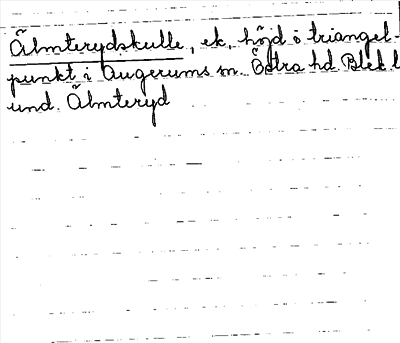 Älmterydskulle, ek, höjd o triangel-
punkt i Augerums sn. Östra hd Blek l
und. Älmteryd